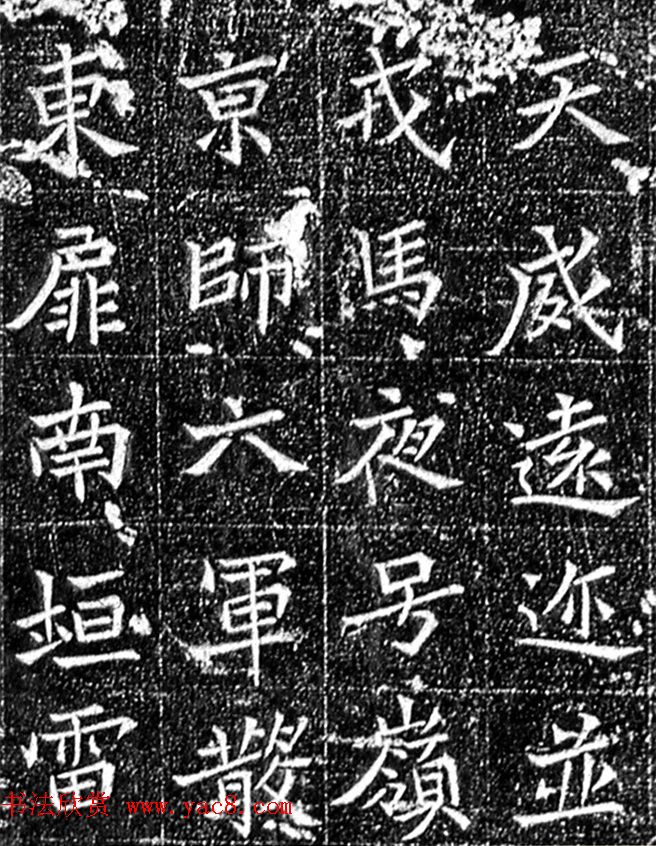 天威遠迩並
戎馬夜号嶺
京師六軍發
東扉南垣雷
书法欣赏 www.yac8.com